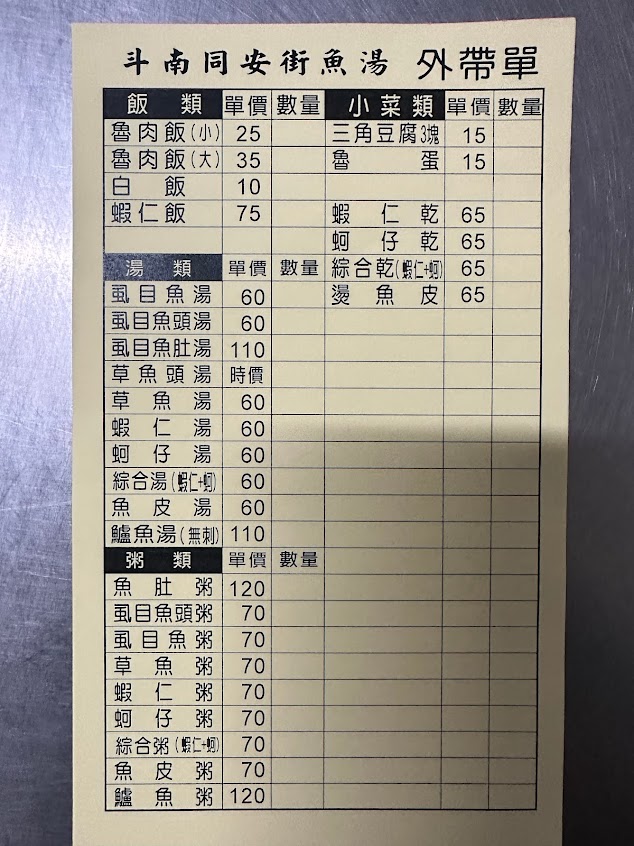 斗南同安街魚湯 外帶單
飯類 單價 數量 小菜類 單價 數量
魯肉飯(小) 25 三角豆腐3塊 15
魯肉飯(大) 35 魯蛋 15
白飯 10
蝦仁飯 75 蝦仁乾 65
蚵仔乾 65
湯類 單價 數量 綜合乾(蝦仁+蚵) 65
虱目魚湯 60 燙魚皮 65
虱目魚頭湯 60
虱目魚肚湯 110
草魚頭湯 時價
草魚湯 60
蝦仁湯 60
蚵仔湯 60
綜合湯(蝦仁+蚵) 60
魚皮湯 60
鱸魚湯(無刺) 110
粥類 單價 數量
魚肚粥 120
虱目魚頭粥 70
虱目魚粥 70
草魚粥 70
蝦仁粥 70
蚵仔粥 70
綜合粥(蝦仁+蚵) 70
魚皮粥 70
鱸魚粥 120